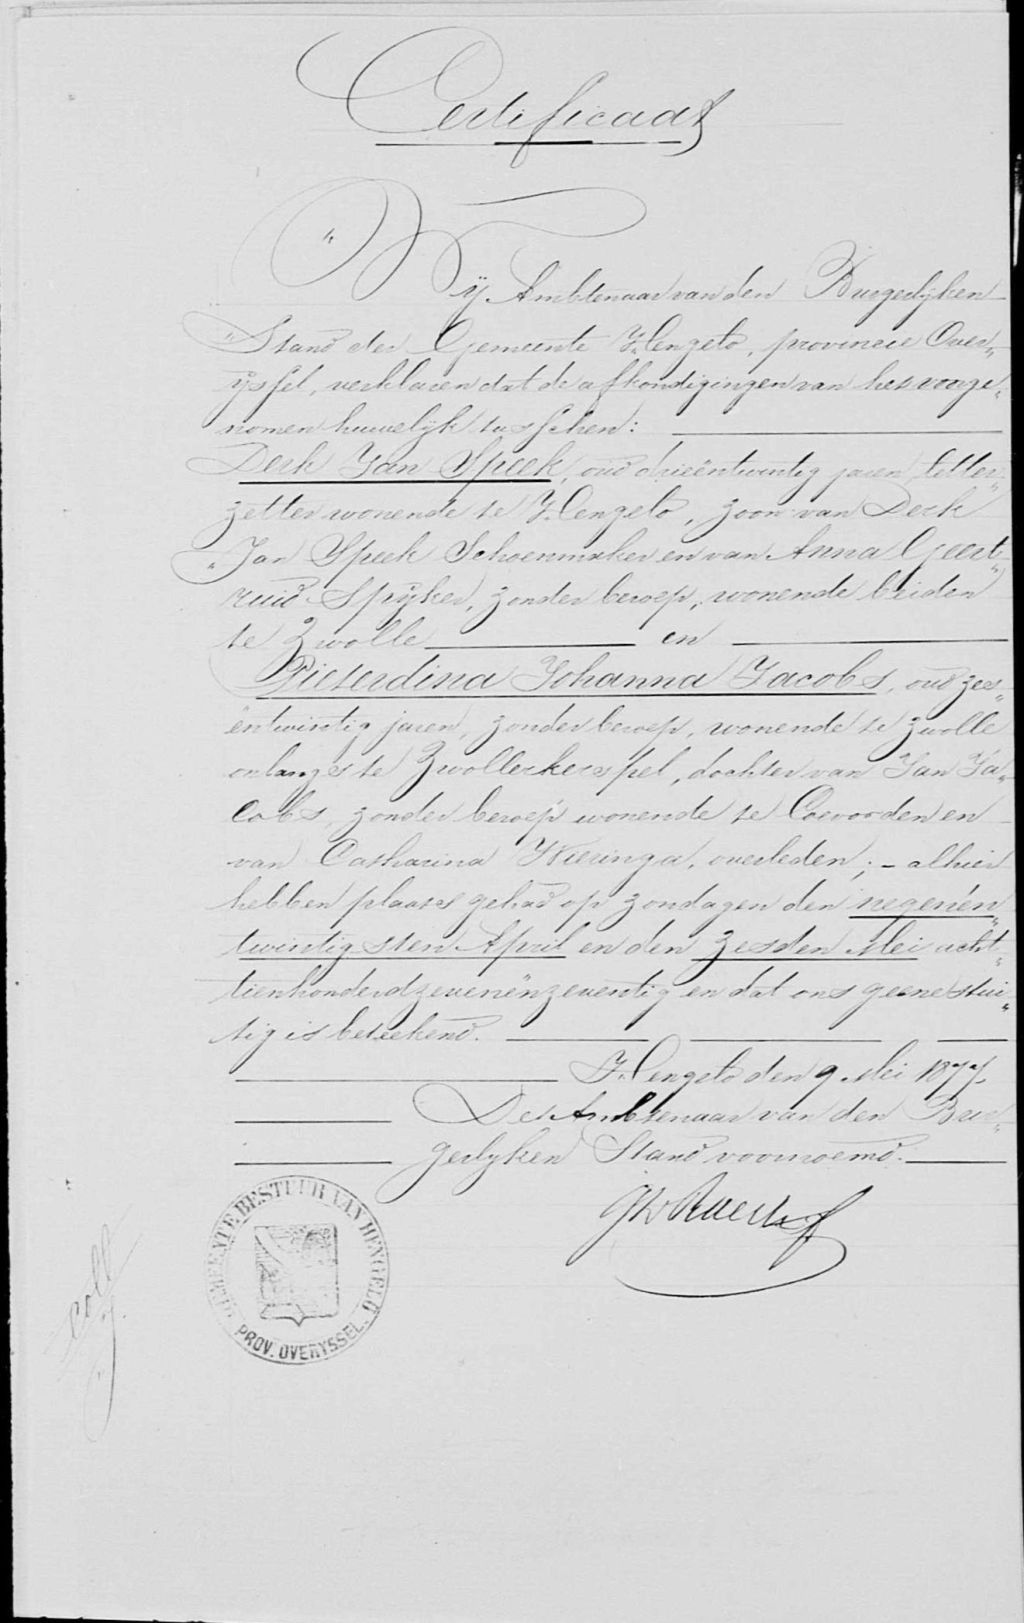 Certificaat
Wij Ambtenaar van den Burgerlijken
Stand der Gemeente Hengelo, provincie Over„
ijssel, verklaren dat de afkondigingen van het voorge„
nomen huwelijk tusschen:
Derk Jan Speek, oud drieëntwintig jaren, letter„
zetter wonende te Hengelo, zoon van Derk
Jan Speek Schoenmaker en van Anna Geert„
ruid Spijker, zonder beroep, wonende beiden
te Zwolle en
Pieterdina Johanna Jacobs, oud zes„
entwintig jaren, zonder beroep, wonende te Zwolle
onlangs te Zwollerkerspel, dochter van Jan Ja„
cobs, zonder beroep wonende te Coevorden en
van Catharina Wieringa, overleden; – alhier
hebben plaats gehad op zondagen den negenën„
twintigsten April en den zesden Mei acht„
tienhonderdzevenënzeventig en dat ons geene stui„
tig is beteekend.
Hengelo den 9 Mei 1877.
De Ambtenaar van den Bur„
gerlijken Stand voornoemd.
GEMEENTE BESTUUR VAN HENGELO
PROV. OVERYSSEL.